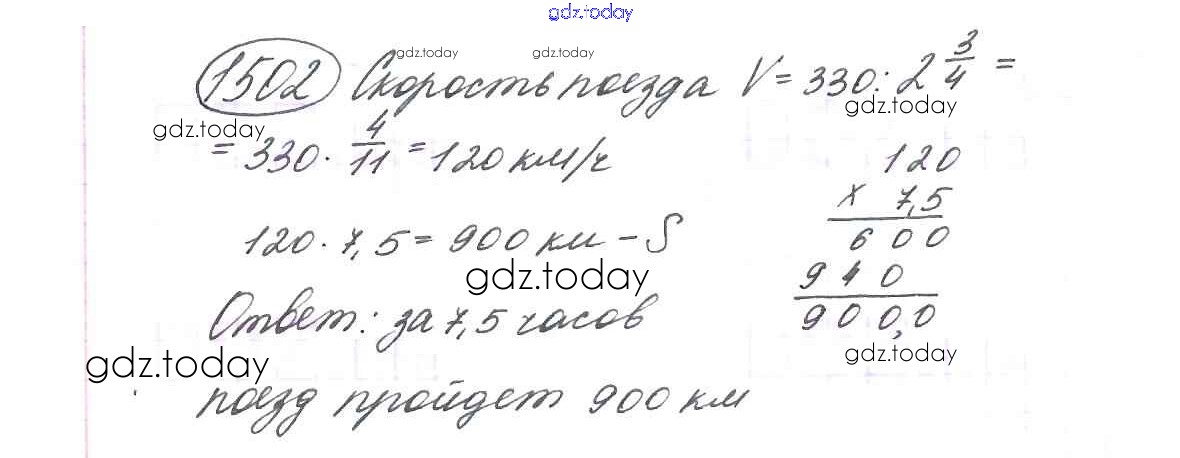 gdz.today
gdz.today gdz.today
1502 Скорость поезда V = 330 : 2 3/4 =
gdz.today gdz.today
= 330 · 4/11 = 120 км/ч
120
× 7,5
120 · 7,5 = 900 км – S
600
gdz.today
940
Ответ: за 7,5 часов
900,0
gdz.today gdz.today
поезд пройдет 900 км